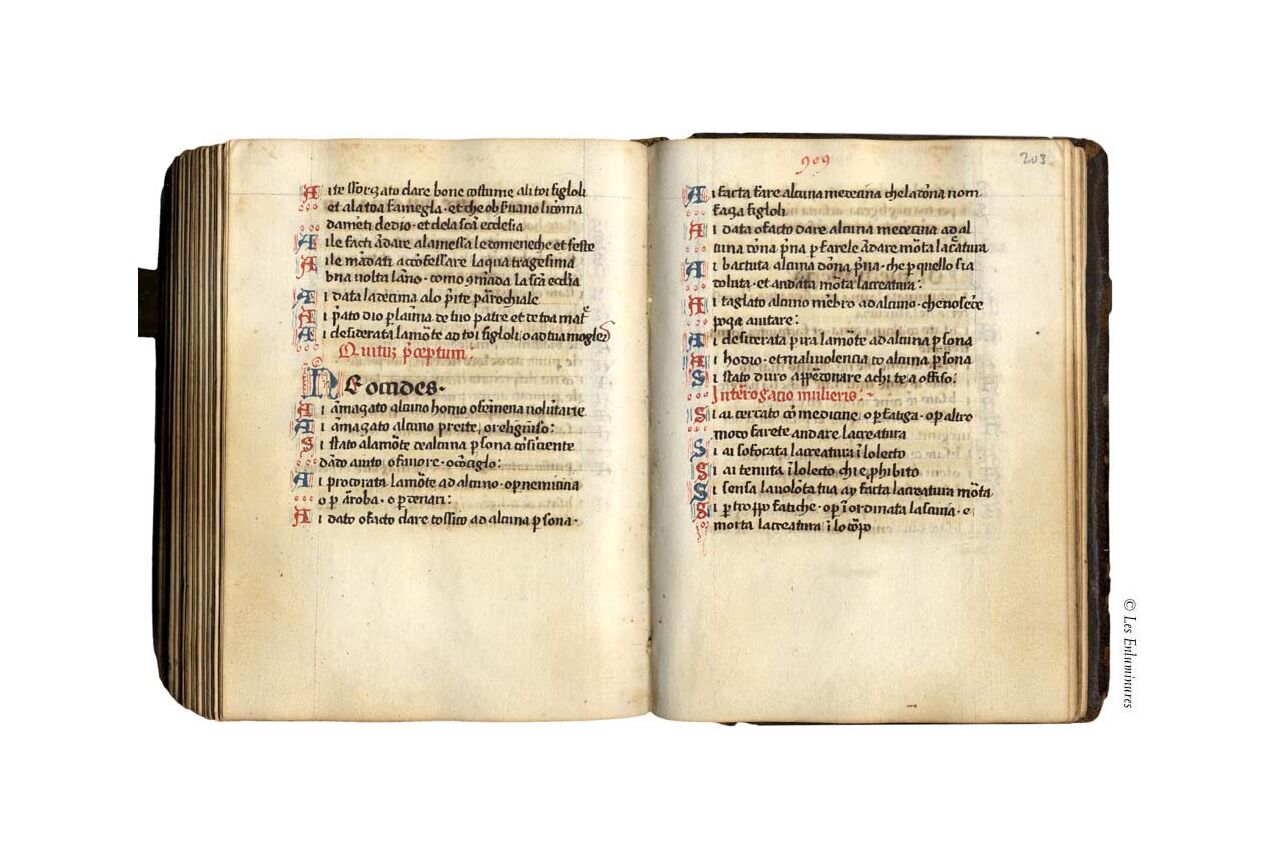 Ai te sforzato dare bone costume ali toi figloli
et ala toa famegla · et che obs̃uano li cõma
damẽti de dio · et dela scã ecclesia
Ai le facti ãdare ala messa le domeneche et feste
Ai le mãdati a cõfessare la quatragesima
una volta lãno · como cõmãda la scã ecc̃lia
Ai data la decima a lo p̃ite parochiale
Ai p̃ato dio p̲ laĩma de tuo patre et de toa mat̃
Ai desiderata la mõte ad toi figloli · o ad tua mogle
Quintuʒ p̃ceptum
Ne occides ·
Ai amaʒato alcuno homo o femena volũtarie
Ai amaʒato alcuno preite, o religiuso:
Si stato a la mõte de alcuna p̲sona cõsiciente
dãto aiuto, o fauore · o cõciglo:
Ai procurata la mõte ad alcuno · op̲ nemicitia
o p̲ aroba · o p̲ denari:
Ai dato o facto dare tossico ad alcuna p̲sona ·
909
203
Ai facta fare alcuna medecina che la dõna nom
faʒa figloli
Ai data o facto dare alcuna medecina ad al
cuna dõna p̃na p̲ farele ãdare mõta la c̃atura
Ai bactuta alcuna dõna p̃na · che p̲ quello sia
doluta · et andata mõta la creatura:
Ai taglato alcuno mẽbro ad alcuno · che no se de
poʒa aiutare:
Ai desiderata p̲ ira la mõte ad alcuna p̲sona
Ai hodio · et maliuolencia co alcuna p̲sona
Si stato duro a p̲dõnare a chi te a offiso:
Interrogacio mulieris:
Si ai cercato cõ medicine o p̲ fatiga · o p̲ altro
modo farete andare la creatura
Si ai soffocata la creatura ĩ lo lecto
Si ai tenuta ĩ lo lecto chi e p̲hibito
Si senza la volõta tua ay facta la creatura mõta ·
Si p̲ troppo fatiche · o p̲ ĩordinata lascivia · e
morta la creatura ĩ lo corpo
© Les Enluminures